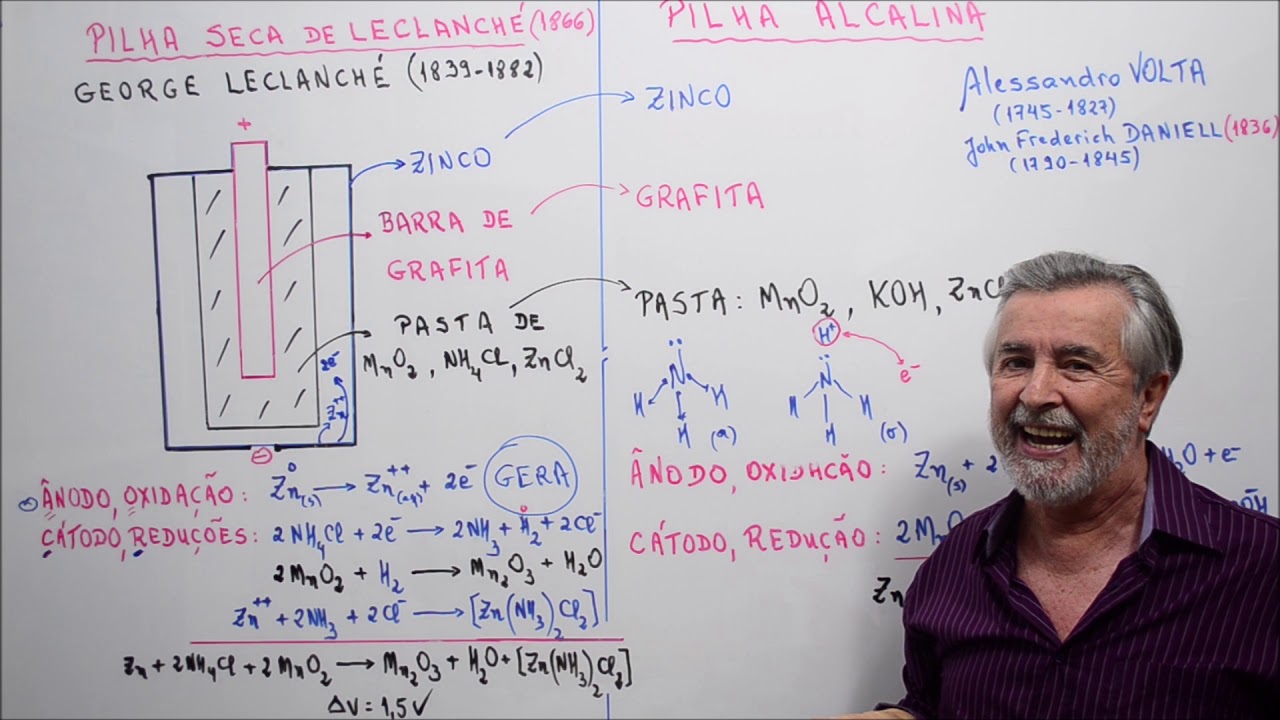 PILHA SECA DE LECLANCHÉ (1866)
GEORGE LECLANCHÉ (1839-1882)
+
ZINCO
BARRA DE
GRAFITA
PASTA DE
MnO₂, NH₄Cl, ZnCl₂
2e⁻
Zn⁺⁺
⊖
⊖ ÂNODO, OXIDAÇÃO: Zn⁰(s) → Zn⁺⁺(aq) + 2e⁻ GERA
CÁTODO, REDUÇÕES: 2NH₄Cl + 2e⁻ → 2NH₃ + H₂ + 2Cl⁻
2MnO₂ + H₂ → Mn₂O₃ + H₂O
Zn⁺⁺ + 2NH₃ + 2Cl⁻ → [Zn(NH₃)₂Cl₂]
Zn + 2NH₄Cl + 2MnO₂ → Mn₂O₃ + H₂O + [Zn(NH₃)₂Cl₂]
ΔV = 1,5V
PILHA ALCALINA
ZINCO
GRAFITA
PASTA: MnO₂, KOH, ZnCl
Alessandro VOLTA
(1745-1827)
John Frederich DANIELL (1836)
(1790-1845)
N H H H (a)
H⁺ e⁻
N H H H (b)
ÂNODO, OXIDAÇÃO: Zn(s) + 2 H₂O + e⁻
CÁTODO, REDUÇÃO: 2Mn
Zn